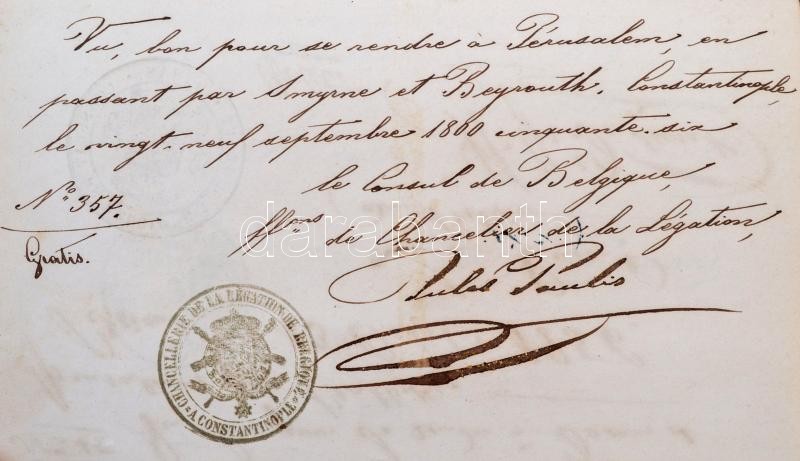 Vu, bon pour se rendre à Jérusalem, en
passant par Smyrne et Beyrouth. Constantinople,
le vingt-neuf septembre 1800 cinquante-six
le Consul de Belgique,
No 357.
ffons de Chancelier de la Légation,
Gratis.
Jules Paulis
CHANCELLERIE DE LA LÉGATION DE BELGIQUE A CONSTANTINOPLE
darabanth